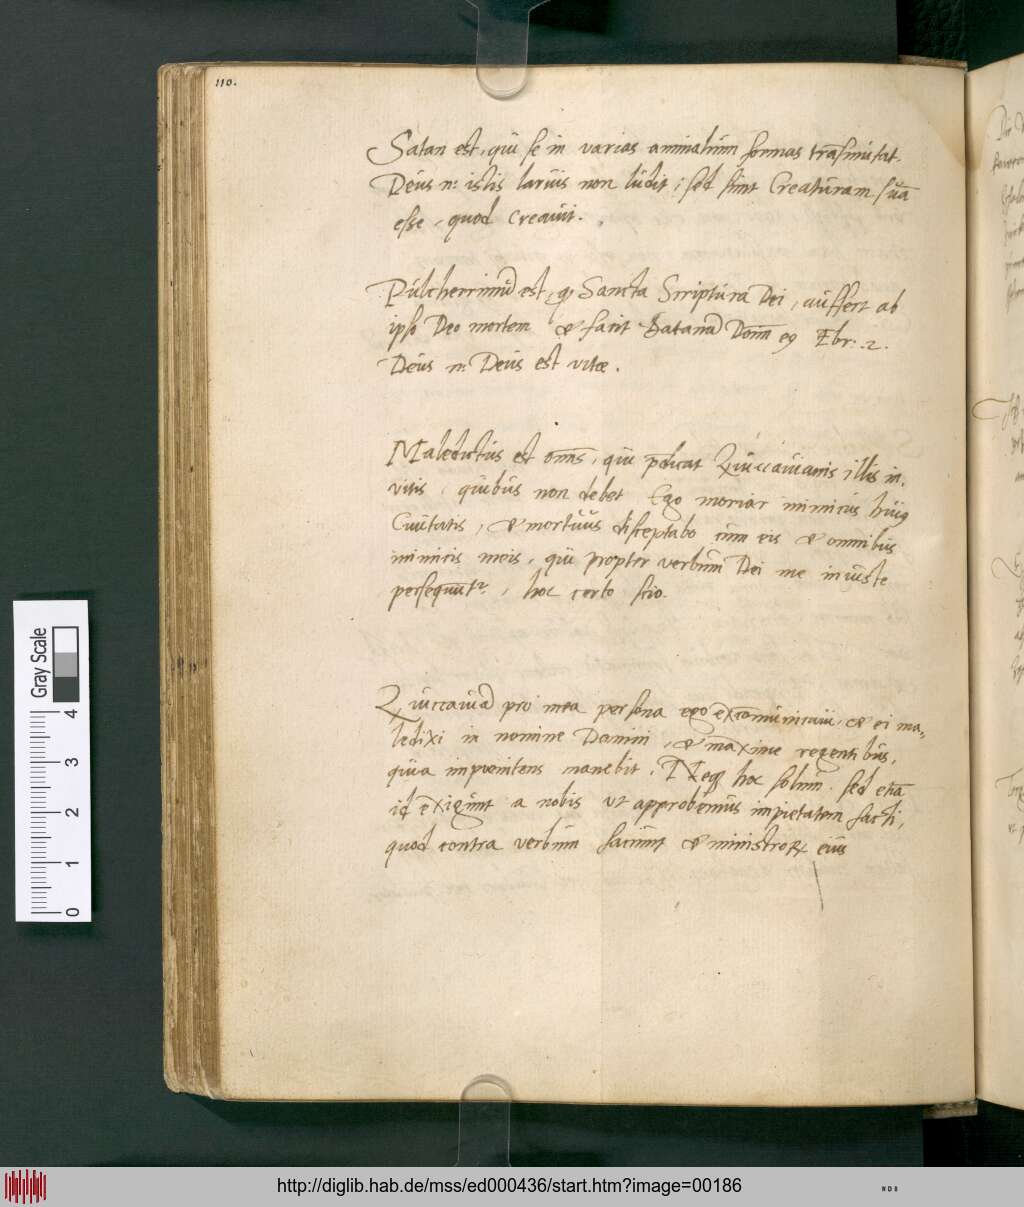 110.
Satan est, qui se in varias animalium formas trãsmutat.
Deus n: istis larvis non ludit: sed sint Creaturam suã
esse, quod creavit.
Pulcherrimũ est, q Sancta Scriptura Dei, auffert ab
ipso Deo mortem & facit Satanã Dom̃ ex Ebr: 2.
Deus n: Deus est vitæ.
Maledictus est om̃s, qui p̃dicat illis in=
vitis, quibus non debet Ego moriar inimicus huiq
Civitatis, & mortuus disceptabo cum eis & omnibus
inimicis meis, qui propter verbum Dei me iniuste
persequunt, hoc certo scio.
pro mea persona ego excõmunicavi, & ei ma=
ledixi in nomine Domini, & maxime regentibus,
quia impœnitens manebit. Neq hoc solum. sed etiã
id exigunt a nobis ut approbemus impietatem facti,
quod contra verbum faciunt & ministrorꝝ eius
Gray Scale
4
3
2
1
0
http://diglib.hab.de/mss/ed000436/start.htm?image=00186